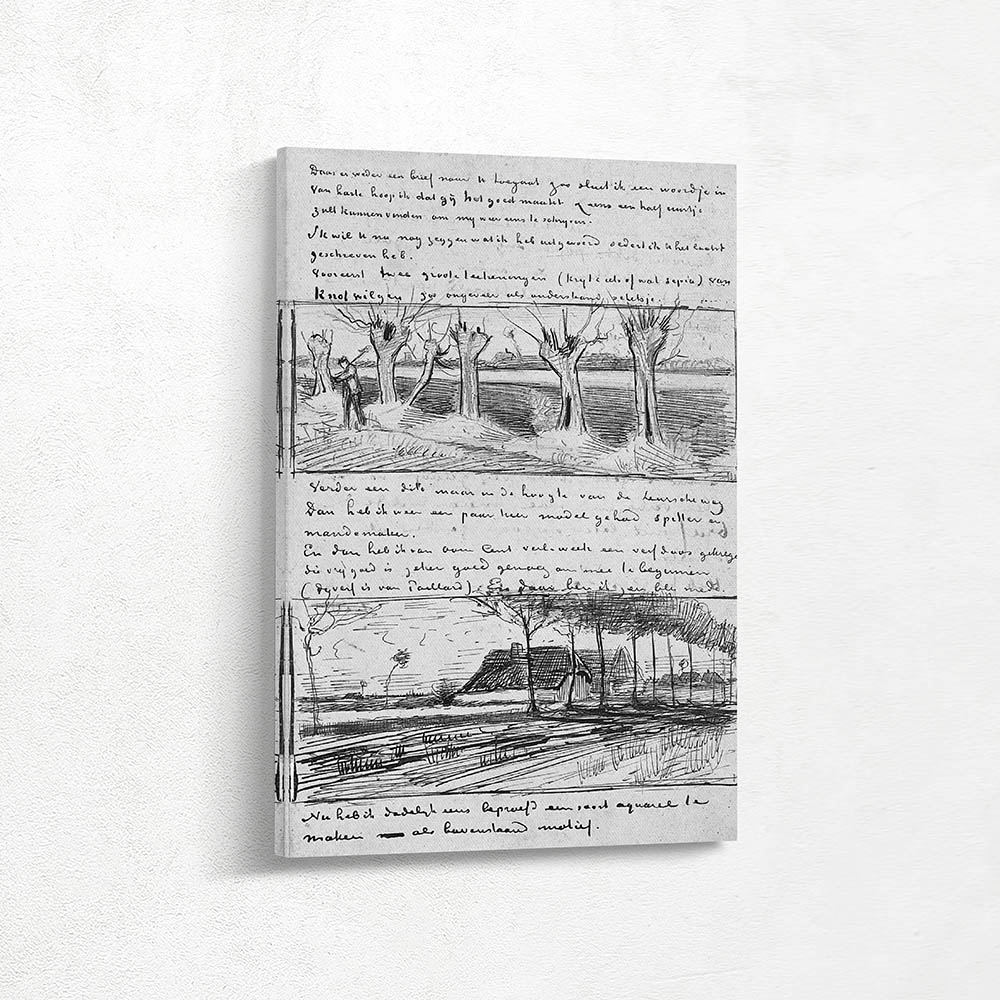 Daar er weder een brief naar U toegaat zoo sluit ik een woordje in
Van harte hoop ik dat gij het goed maakt & eens een half uurtje
zult kunnen vinden om mij weer eens te schrijven.
Ik wil U nu nog zeggen wat ik heb uitgevoerd sedert ik U het laatst
geschreven heb.
Vooreerst twee groote teekeningen (krijt & iets of wat sepia) van
Knotwilgen zoo ongeveer als onderstaand schetsje.
Verder een dito maar in de hoogte van de Leurscheweg
Dan heb ik weer een paar keer model gehad spitter en
mandemaker.
En dan heb ik van oom Cent verl. week een verfdoos gekrege
die vrij goed is zeker goed genoeg om mee te beginnen
(de verf is van Paillard). En daar ben ik zeer blij mede.
Nu heb ik dadelijk eens beproefd een soort aquarel te
maken als bovenstaand motief.